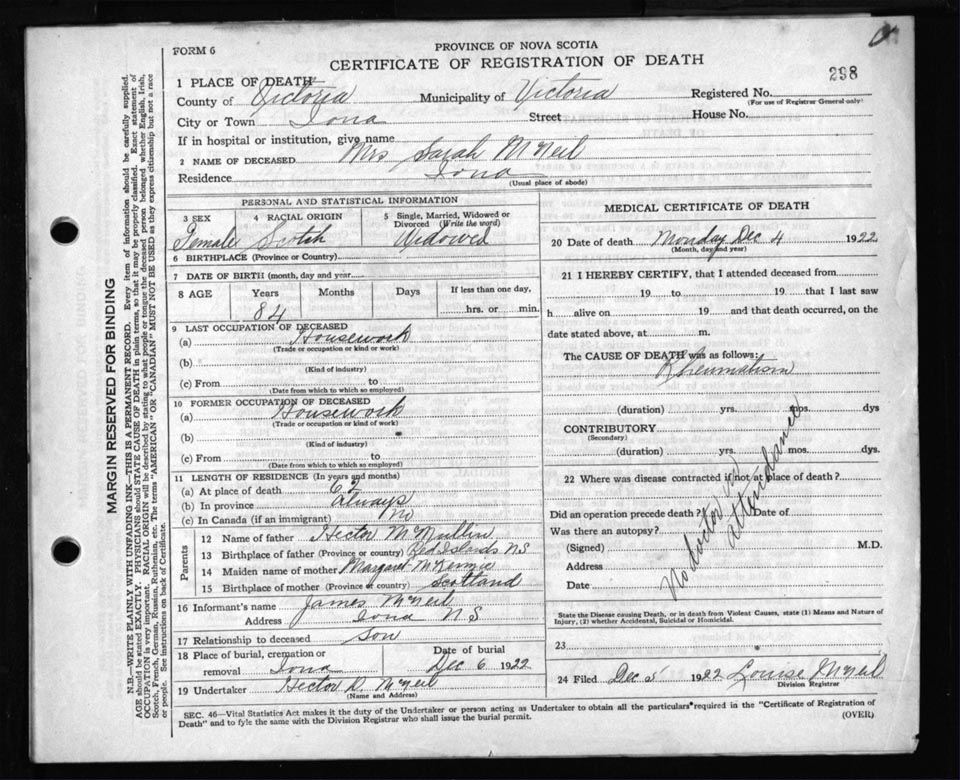 FORM 6
PROVINCE OF NOVA SCOTIA
CERTIFICATE OF REGISTRATION OF DEATH
298
1 PLACE OF DEATH
County of Victoria Municipality of Victoria Registered No.
(For use of Registrar General only)
City or Town Iona Street House No.
If in hospital or institution, give name
2 NAME OF DECEASED Mrs Sarah McNeil
Residence Iona
(Usual place of abode)
PERSONAL AND STATISTICAL INFORMATION
3 SEX 4 RACIAL ORIGIN 5 Single, Married, Widowed or Divorced (Write the word)
Female Scotch Widowed
6 BIRTHPLACE (Province or Country)
7 DATE OF BIRTH (month, day and year)
8 AGE Years Months Days If less than one day,
84 hrs. or min.
9 LAST OCCUPATION OF DECEASED
(a) Housework
(Trade or occupation or kind or work)
(b)
(Kind of industry)
(c) From to
(Date from which to which so employed)
10 FORMER OCCUPATION OF DECEASED
(a) Housework
(Trade or occupation or kind of work)
(b)
(Kind of industry)
(c) From to
(Date from which to which so employed)
11 LENGTH OF RESIDENCE (In years and months)
(a) At place of death 62
(b) In province always
(c) In Canada (if an immigrant) No
Parents
12 Name of father Hector McMullin
13 Birthplace of father (Province or country) Red Islands NS
14 Maiden name of mother Margaret
15 Birthplace of mother (Province or country) Scotland
16 Informant's name James McNeil
Address Iona N S
17 Relationship to deceased son
18 Place of burial, cremation or removal Iona Date of burial Dec 6 1922
19 Undertaker Hector D. McNeil
(Name and Address)
MEDICAL CERTIFICATE OF DEATH
20 Date of death Monday Dec 4 1922
(Month, day and year)
21 I HEREBY CERTIFY, that I attended deceased from
19 to 19 : that I last saw
h alive on 19 and that death occurred, on
date stated above, at m.
The CAUSE OF DEATH was as follows:
Rheumatism
(duration) yrs. mos. dys
CONTRIBUTORY
(Secondary)
(duration) yrs. mos. dys.
22 Where was disease contracted if not at place of death?
Did an operation precede death? Date of
Was there an autopsy?
(Signed) M.D.
Address
Date
No doctor in attendance
State the Disease causing Death, or in death from Violent Causes, state (1) Means and Nature of
Injury, (2) whether Accidental, Suicidal or Homicidal.
23
24 Filed Dec 5 1922 Louise McNeil
Division Registrar
SEC. 46—Vital Statistics Act makes it the duty of the Undertaker or person acting as Undertaker to obtain all the particulars required in the "Certificate of Registration of
Death" and to fyle the same with the Division Registrar who shall issue the burial permit. (OVER)
MARGIN RESERVED FOR BINDING
N.B.—WRITE PLAINLY WITH UNFADING INK—THIS IS A PERMANENT RECORD. Every item of information should be carefully supplied.
AGE should be stated EXACTLY. PHYSICIANS should STATE CAUSE OF DEATH in plain terms, so that it may be properly classified. Exact statement of
OCCUPATION is very important. RACIAL ORIGIN will be described by stating to what people or tongue the deceased person belonged whether English, Irish,
Scotch, French, German, Russian, Ruthenian, etc. The terms "AMERICAN" OR "CANADIAN" MUST NOT BE USED as they express citizenship but not a race
or people. See instructions on back of Certificate.